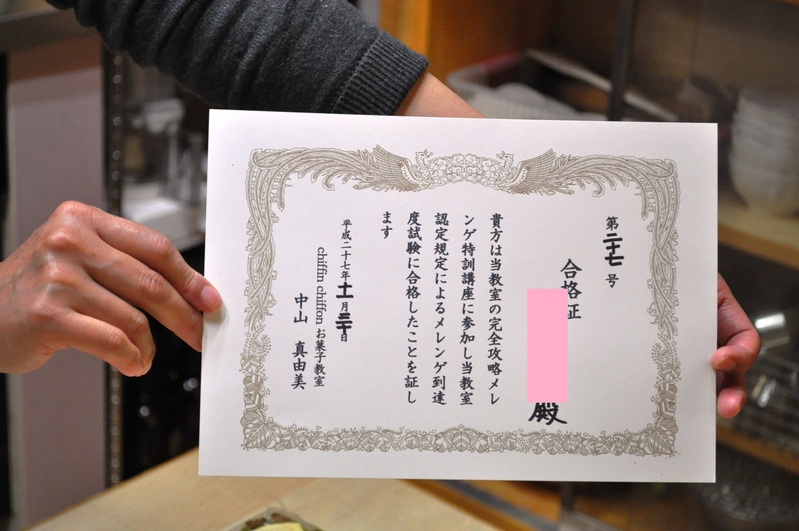 第二十七号
合格証
殿
貴方は当教室の完全攻略メレ
ンゲ特訓講座に参加し当教室
認定規定によるメレンゲ到達
度試験に合格したことを証し
ます
平成二十七年十一月二十日
chiffin chiffon お菓子教室
中山 真由美